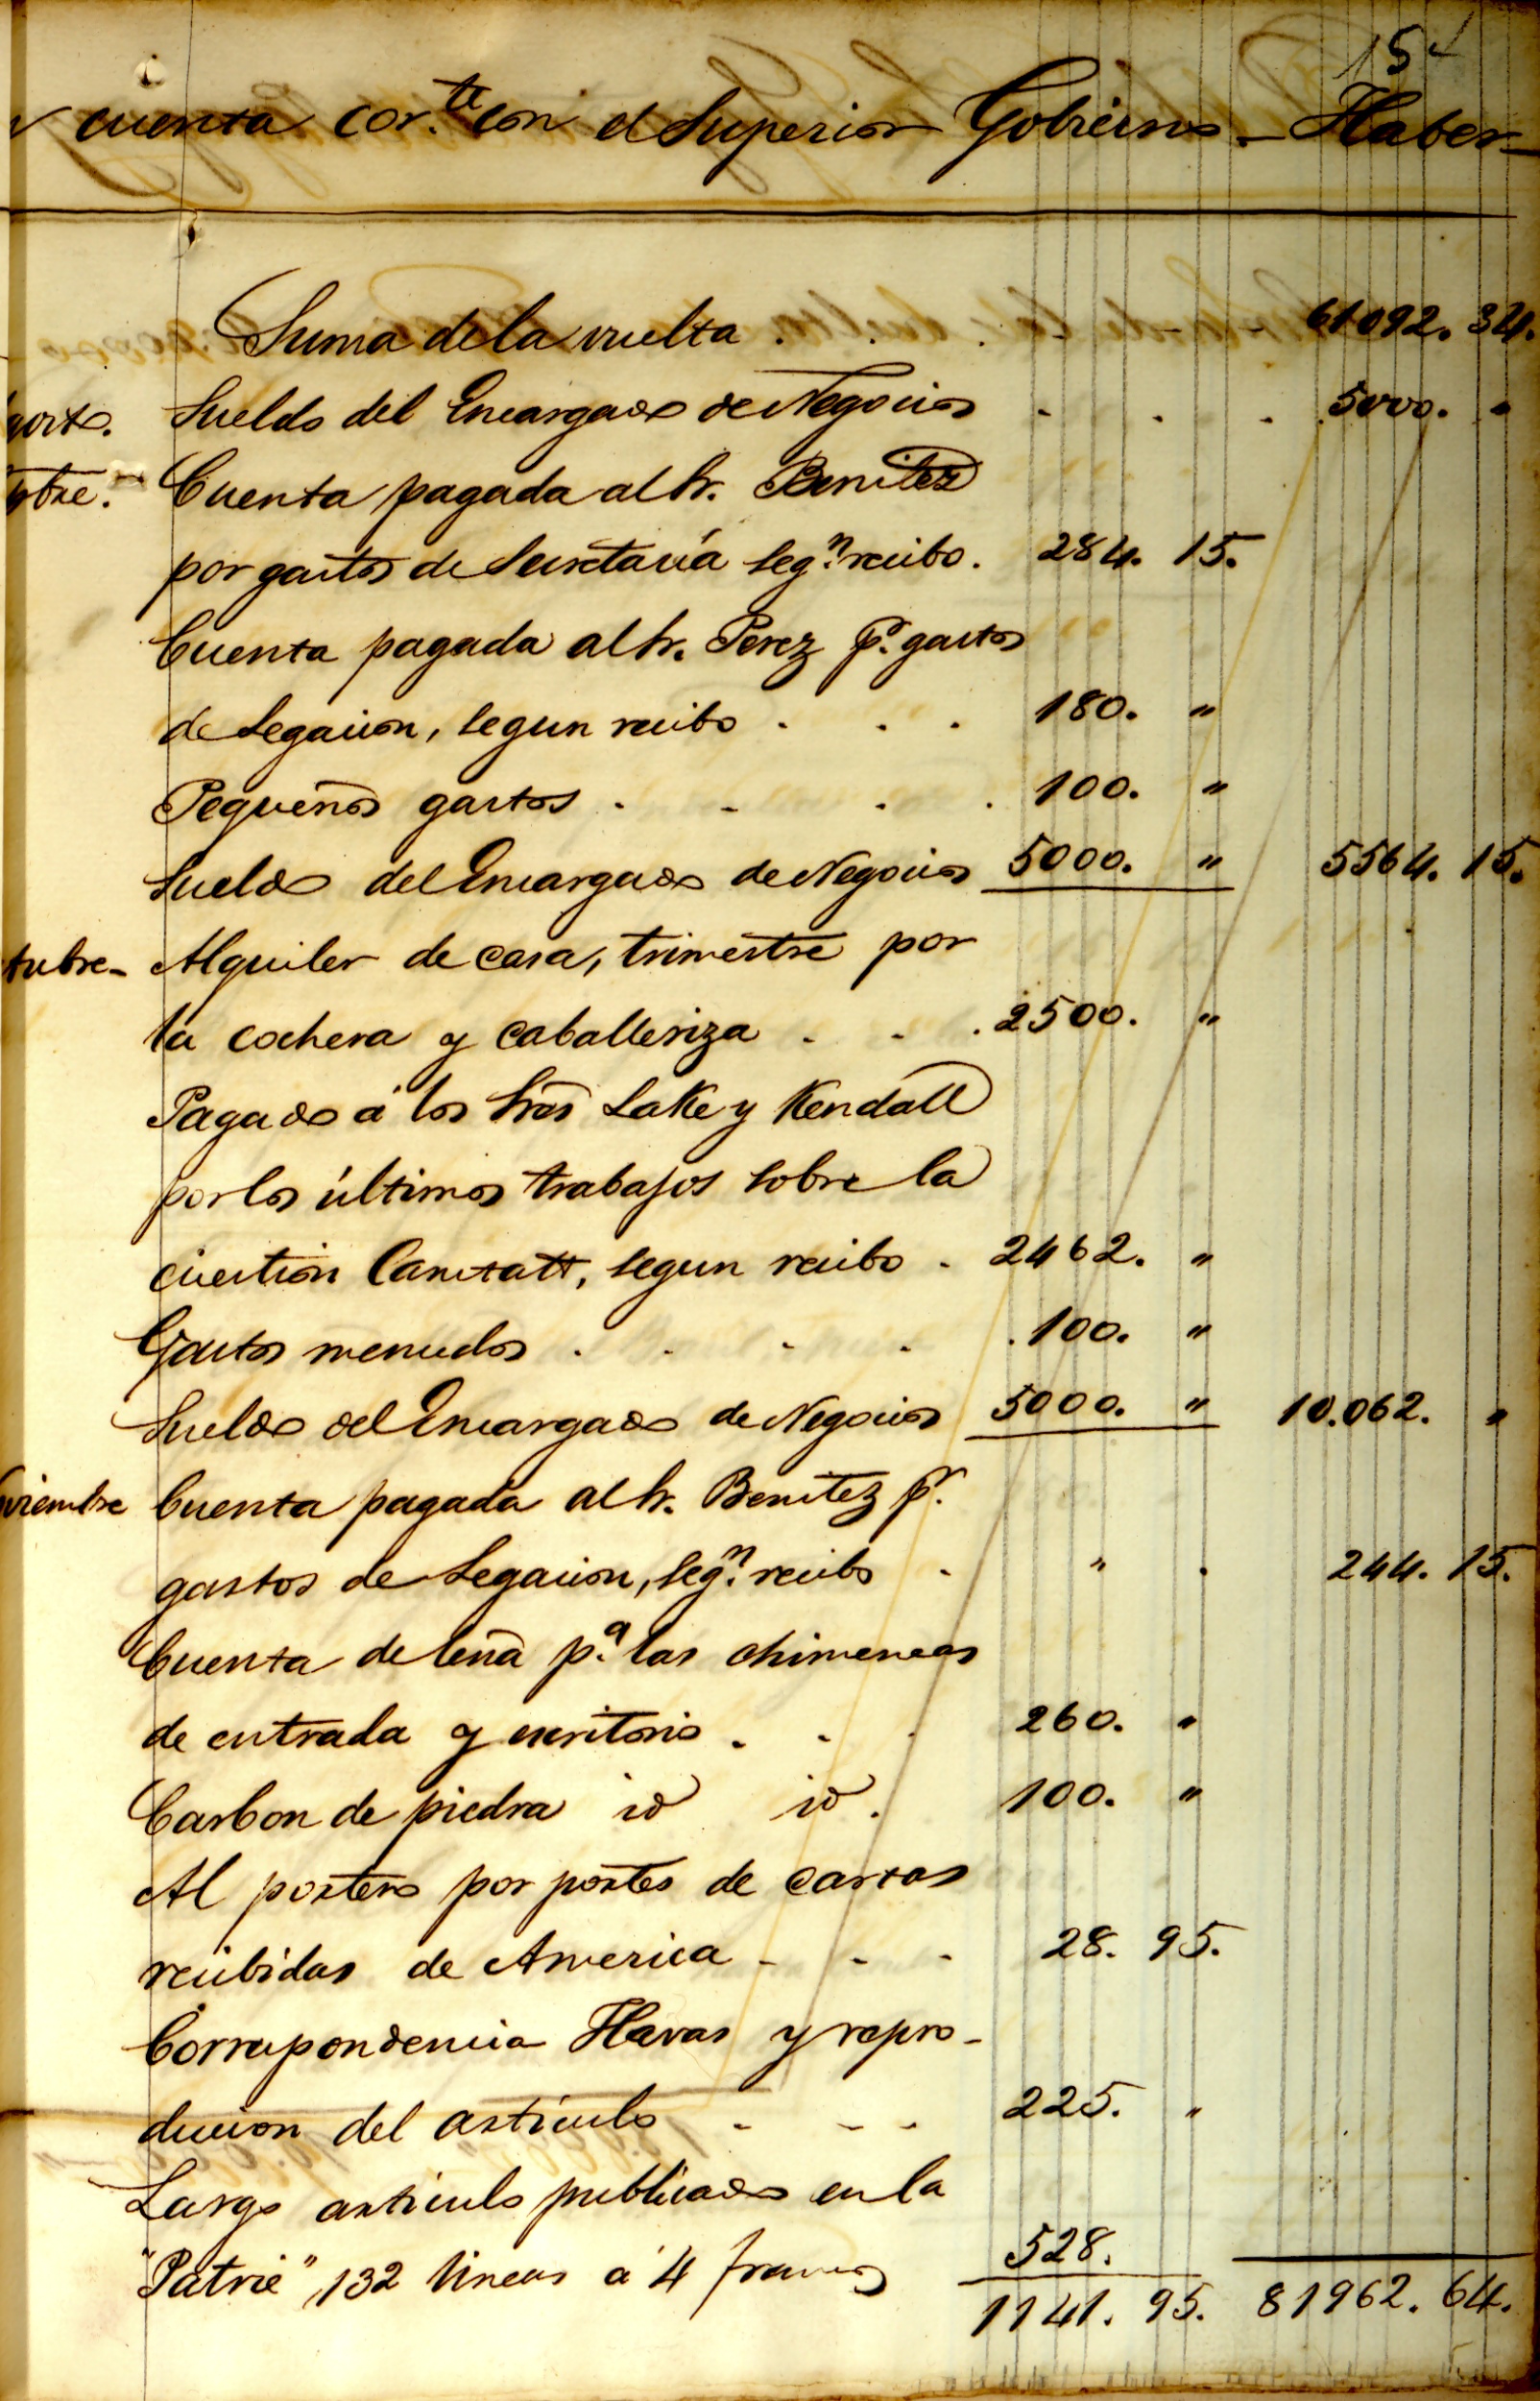 15
cuenta cor.te con el Superior Gobierno - Haber -
Suma de la vuelta . . . 61092. 34.
gosto. Sueldo del Encargado de Negocios . . . 5000. "
tbre. Cuenta pagada al Sr. Benitez
por gastos de Secretaría seg.n recibo. 284. 15.
Cuenta pagada al Sr. Perez p.r gastos
de Legacion, segun recibo . . . 180. "
Pequeños gastos . . . . 100. "
Sueldo del Encargado de Negocios 5000. " 5564. 15.
tubre - Alquiler de casa, trimestre por
la cochera y caballeriza . . . 2500. "
Pagado á los Sres Lake y Kendall
por los últimos trabajos sobre la
cuestion Canstatt, segun recibo . 2462. "
Gastos menudos . . . . . 100. "
Sueldo del Encargado de Negocios 5000. " 10.062. "
viembre Cuenta pagada al Sr. Benitez p.r
gastos de Legacion, seg.n recibo . " . 244. 15.
Cuenta de leña p.a las chimeneas
de entrada y escritorio . . . 260. "
Carbon de piedra id id. 100. "
Al portero por portes de cartas
recibidas de America - - - 28. 95.
Correspondencia Havas y repro-
duccion del artículo - - - 225. "
Largo artículo publicado en la
"Patrie", 132 lineas á 4 francos 528.
1141. 95. 81962. 64.